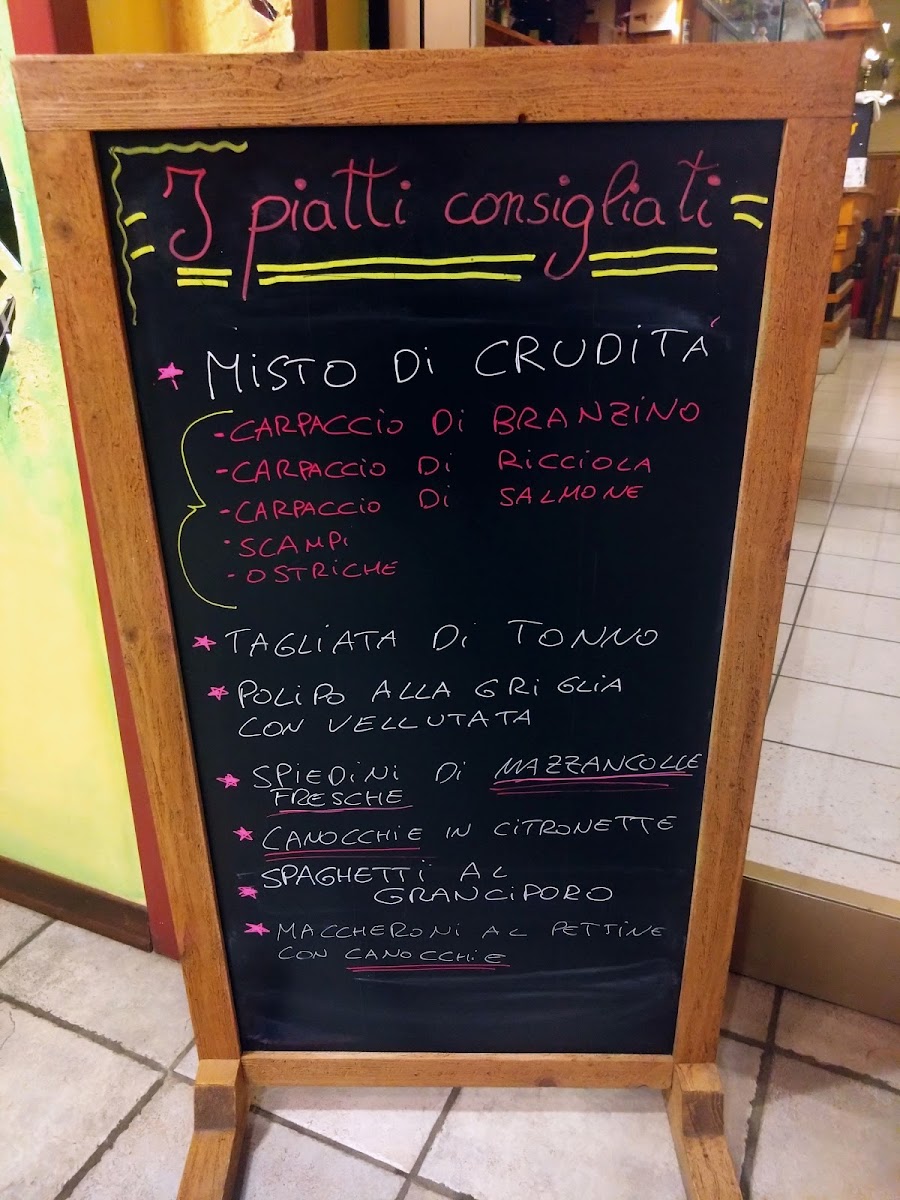 I piatti consigliati
MISTO DI CRUDITÁ
- CARPACCIO DI BRANZINO
- CARPACCIO DI RICCIOLA
- CARPACCIO DI SALMONE
- SCAMPI
- OSTRICHE
TAGLIATA DI TONNO
POLIPO ALLA GRIGLIA
CON VELLUTATA
SPIEDINI DI MAZZANCOLLE
FRESCHE
CANOCCHIE IN CITRONETTE
SPAGHETTI AL
GRANCIPORO
MACCHERONI AL PETTINE
CON CANOCCHIE